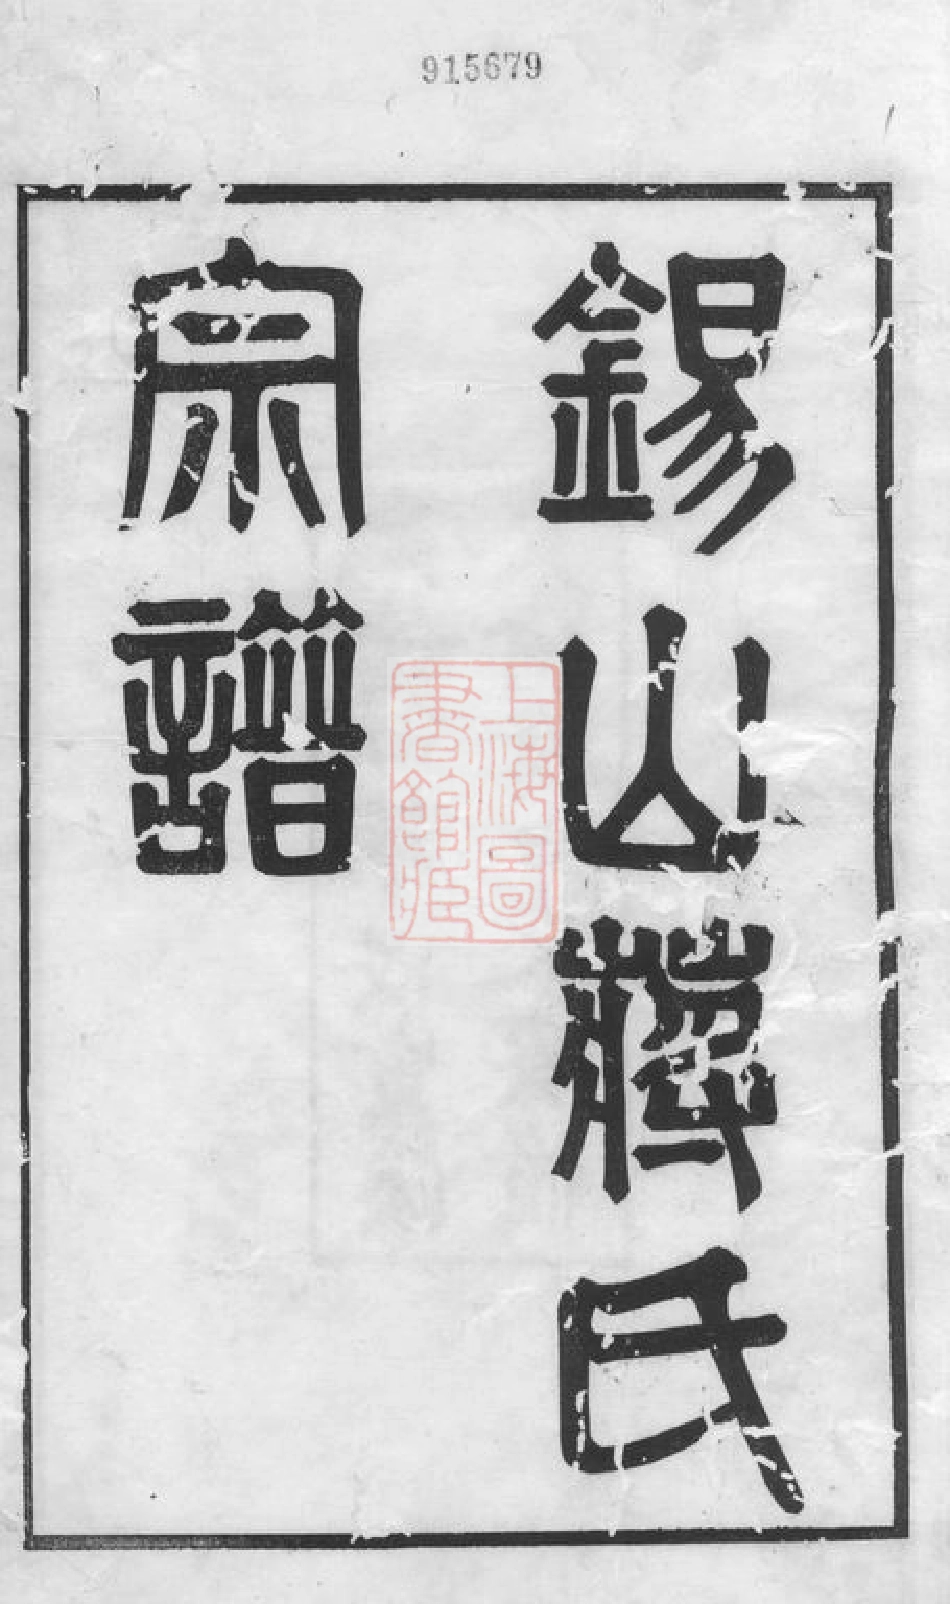 915679
錫山蔣氏
宗譜
上海圖
書館藏